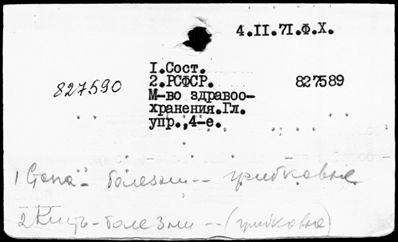 4.II.71.Ф.Х.
I.Сост.
2.РСФСР. 827589
827590
М-во здравоо-
хранения.Гл.
упр.,4-е.
1 болезни -- грибковые
2 Кишь-болезни -- (грибковые)